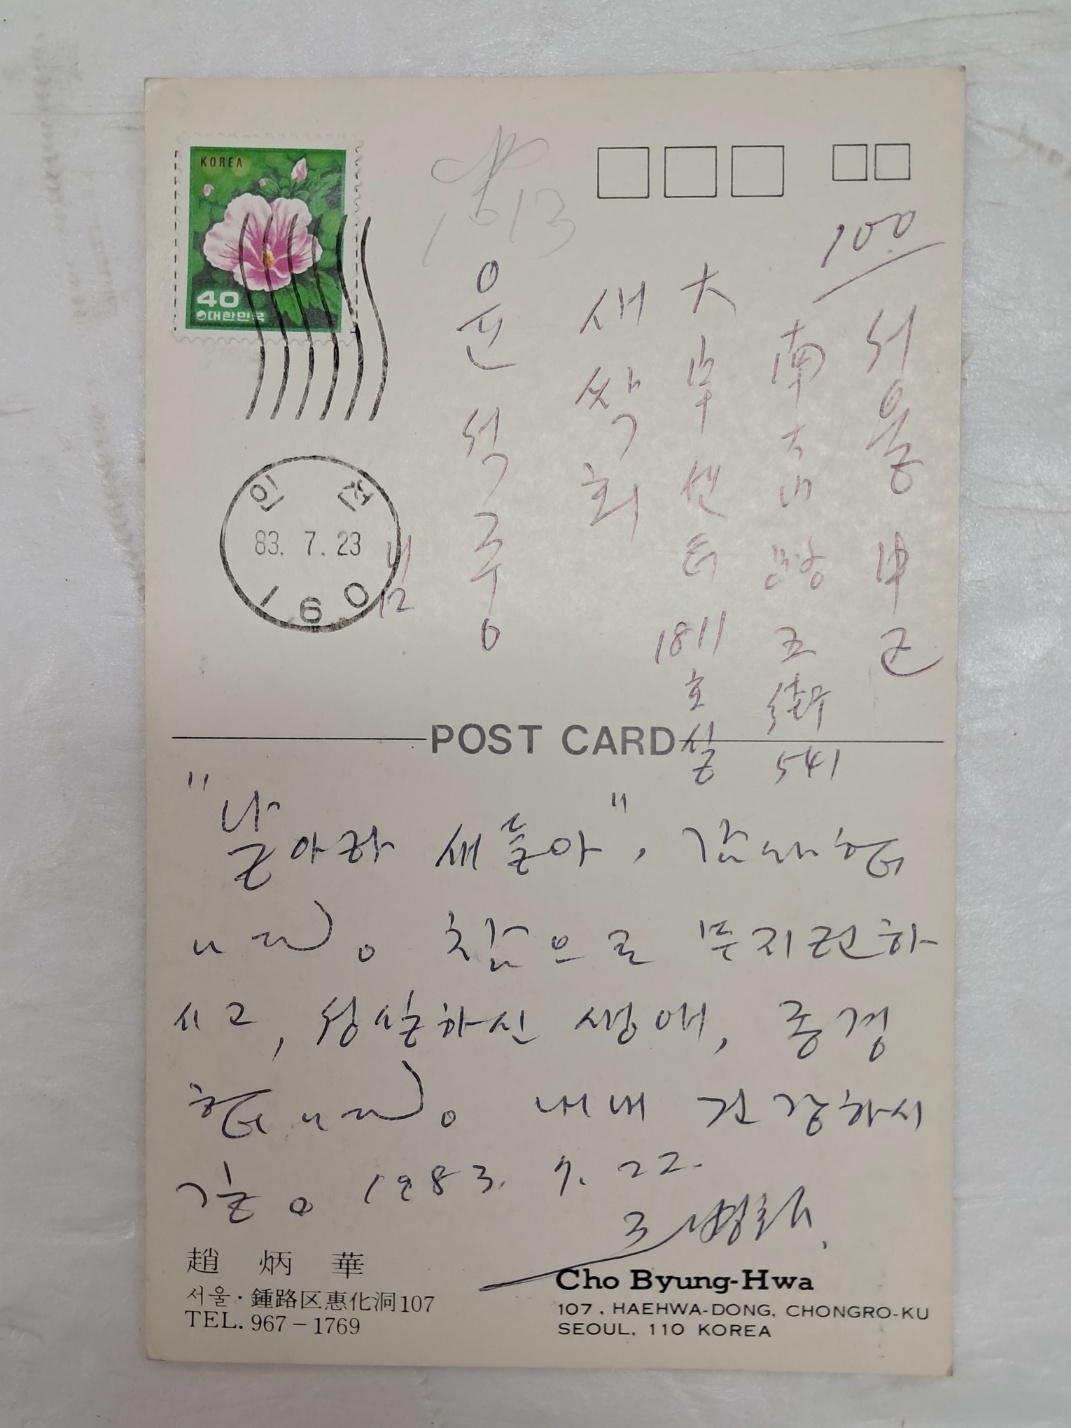 KOREA
40
대한민국
인천
83. 7. 23
160
1613
100
서울 中区
南大門路五街 541
大宇센터 1811호실
새싹회
윤석중
님
POST CARD
"날아라 새들아", 감사합
니다. 참으로 부지런하
시고, 성실하신 생애, 존경
합니다. 내내 건강하시
길. 1983. 7. 22.
조병화
趙 炳 華
서울·鍾路区惠化洞107
TEL. 967-1769
Cho Byung-Hwa
107, HAEHWA-DONG, CHONGRO-KU
SEOUL, 110 KOREA